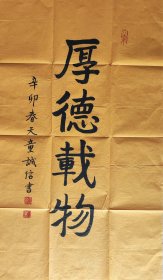 厚德載物
辛卯春天童誠信書